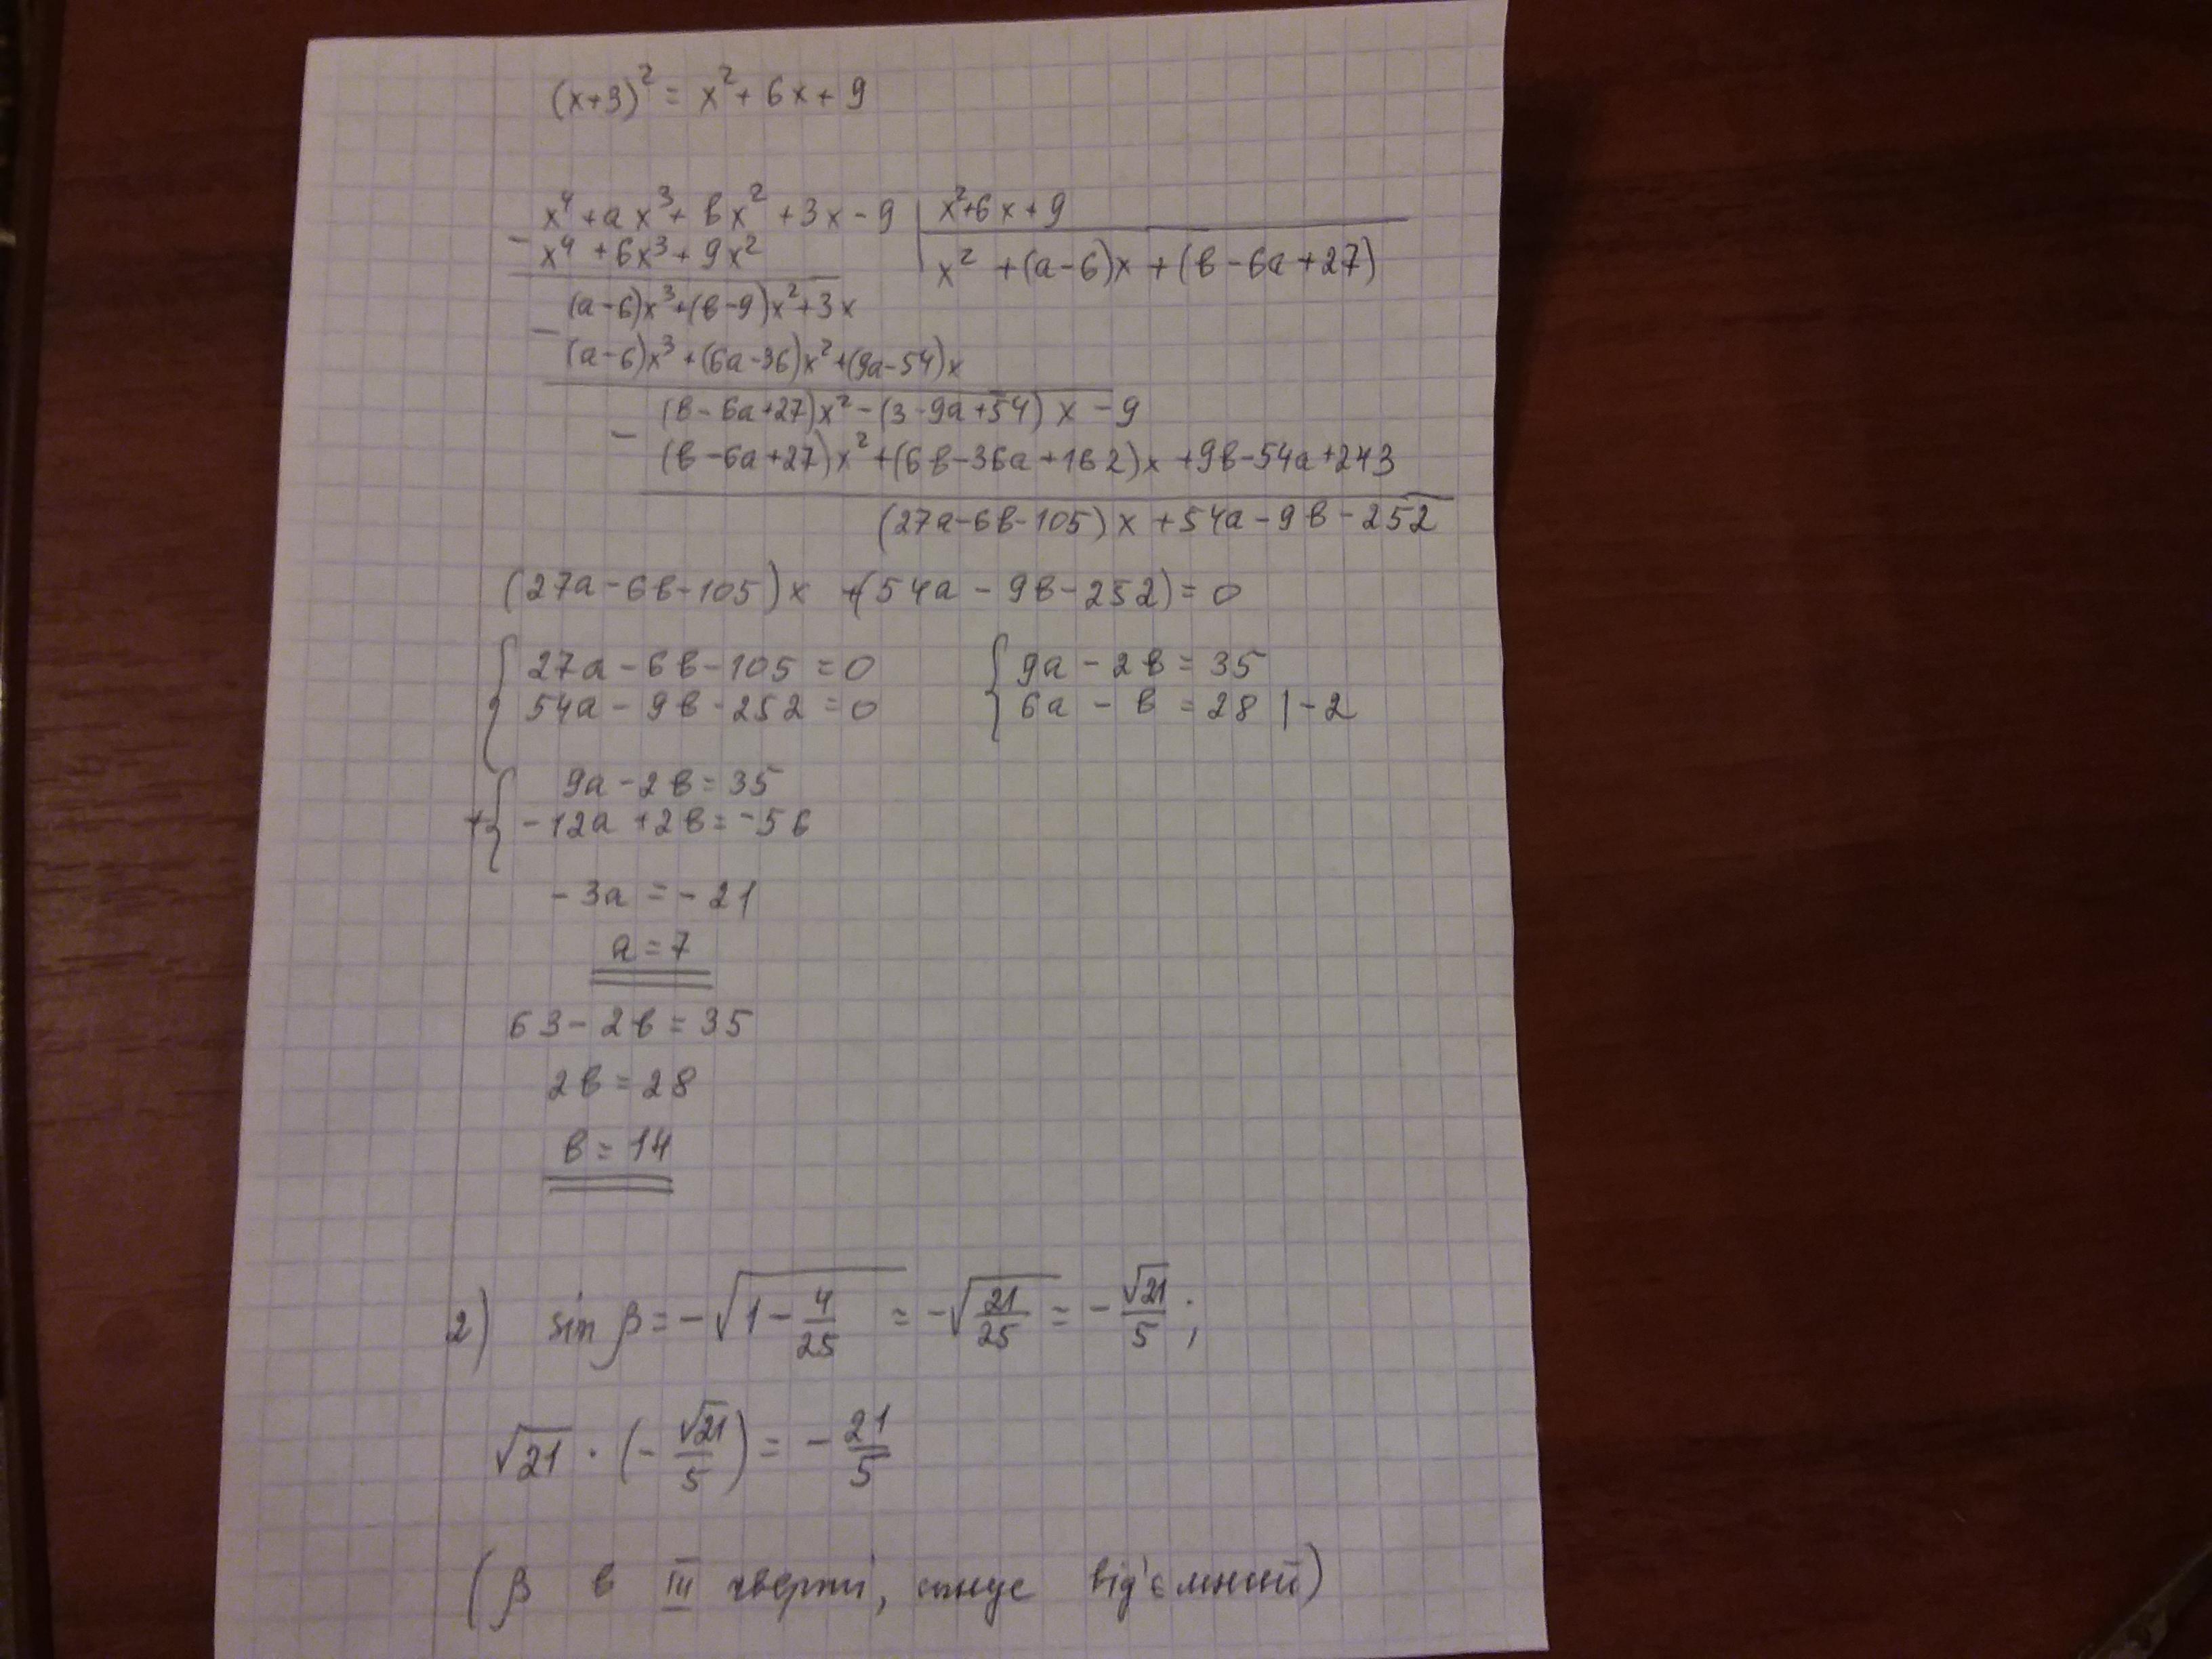 (x+3)² = x² + 6x + 9
x⁴ + ax³ + вx² + 3x - 9 | x²+6x+9
- x⁴ + 6x³ + 9x²
x² + (a-6)x + (в-6a+27)
(a-6)x³+(в-9)x²+3x
- (a-6)x³+(6a-36)x²+(9a-54)x
(в-6a+27)x² - (3-9a+54)x - 9
- (в-6a+27)x²+(6в-36a+162)x +9в-54a+243
(27a-6в-105)x +54a-9в-252
(27a-6в-105)x +(54a-9в-252)=0
{ 27a-6в-105=0 { 9a-2в=35
54a-9в-252=0 6a-в=28 |-2
+{ 9a-2в=35
-12a+2в=-56
-3a=-21
a=7
63-2в=35
2в=28
в=14
2) sin β = -√(1-4/25) = -√(21/25) = -√21/5;
√21 · (-√21/5) = -21/5
(β в III чверті, синус від'ємний)